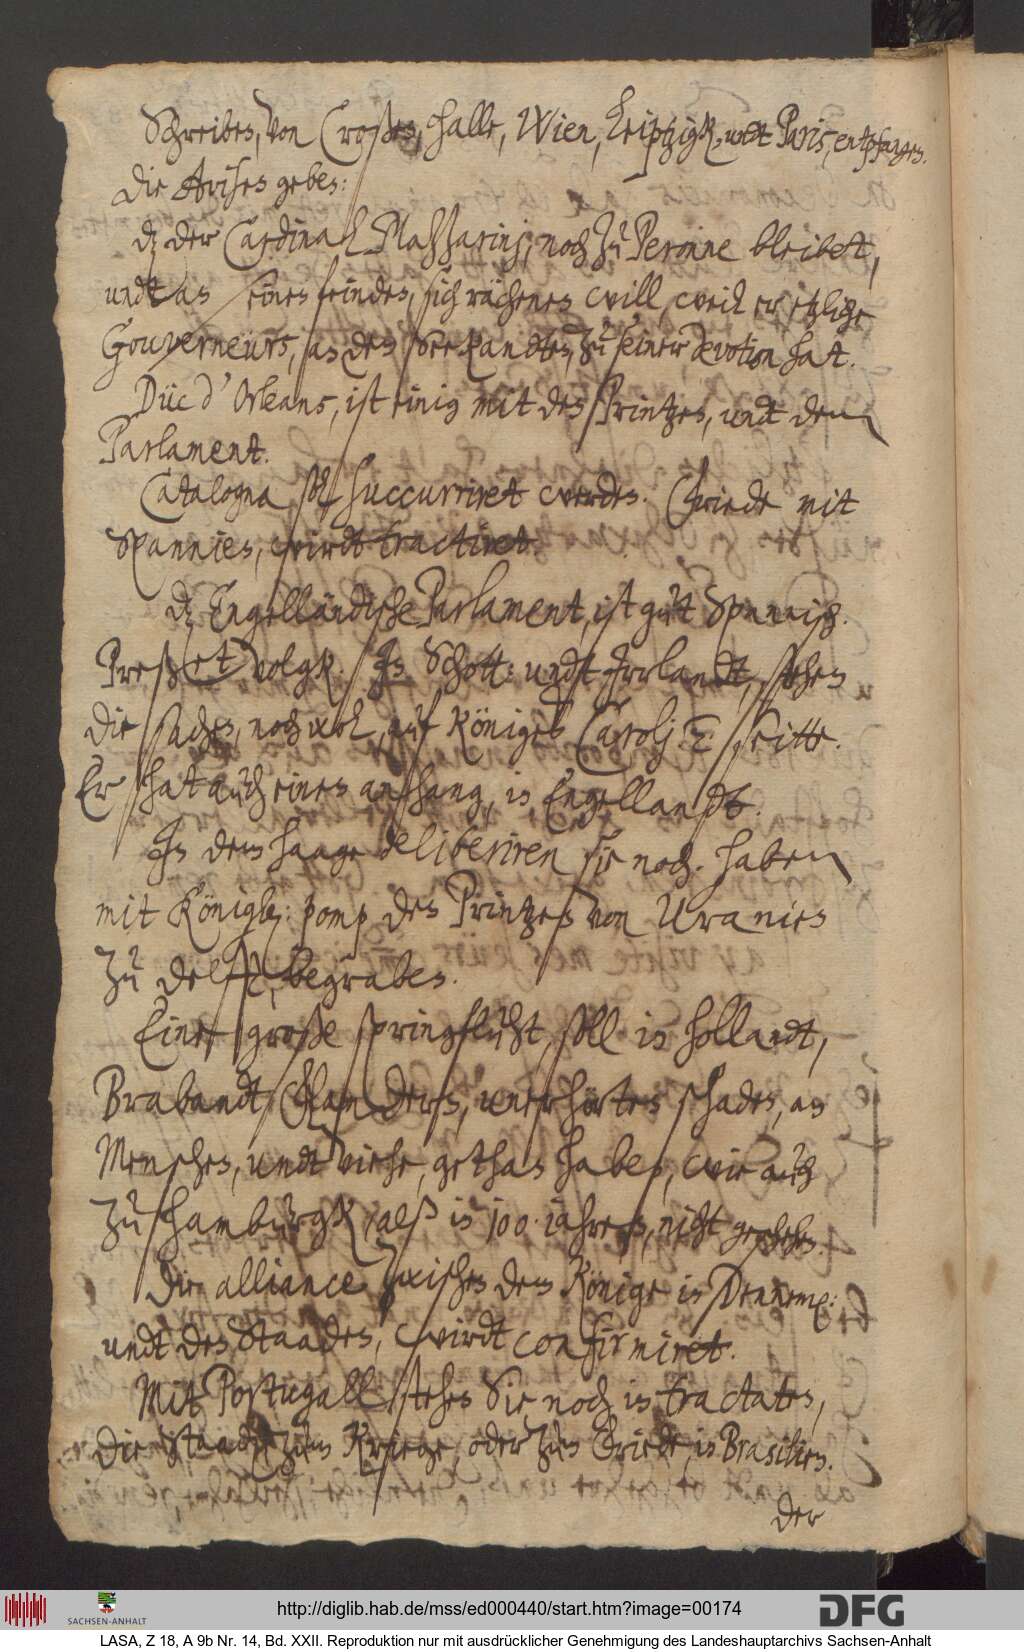 Schreiben, von Croßen, Halle, Wien, Leiptzigk, undt Paris, entpfangen.
Die Avisen geben:
dz der Cardinal Massarinj, noch zu Peronne bleibet,
undt an seinen feinden, sich rächenen will, weil er etzliche
Gouverneurs, an den See Kandten, zu seiner devotion hat.
Düc d'Orleans, ist einig mit des Printzen, undt dem
Parlament.
Catalogna, soll succurriret werden. Friede mit
Spannien, wirdt tractiret.
dz Engelländische Parlament, ist gut Spannisch.
Preßet volgk. In Schott: undt Irrlandt, stehen
die sachen, noch wol, auf Königes Carolj 2. seitte.
Er hat auch einen anhang, in Engellandt.
In dem Haage deliberiren sie noch. haben
mit Königl: pomp, den Printzen von Uranien
zu Delfft, begraben.
Eine große springfluht, soll in Hollandt,
Brabandt, Flandern, unerhörten schaden, an
Menschen, undt viehe, gethan haben, wie auch
zu Hamburgk, alß in 100. jahren, nicht geschehen.
Die alliance zwischen dem Könige in Dennem:
undt den Staaden, wirdt confirmiret.
Mit Portugall stehen Sie noch in tractaten,
Die Staade zum Kriege, oder zum Friede, in Brasilien.
der
SACHSEN-ANHALT
http://diglib.hab.de/mss/ed000440/start.htm?image=00174
DFG
LASA, Z 18, A 9b Nr. 14, Bd. XXII. Reproduktion nur mit ausdrücklicher Genehmigung des Landeshauptarchivs Sachsen-Anhalt